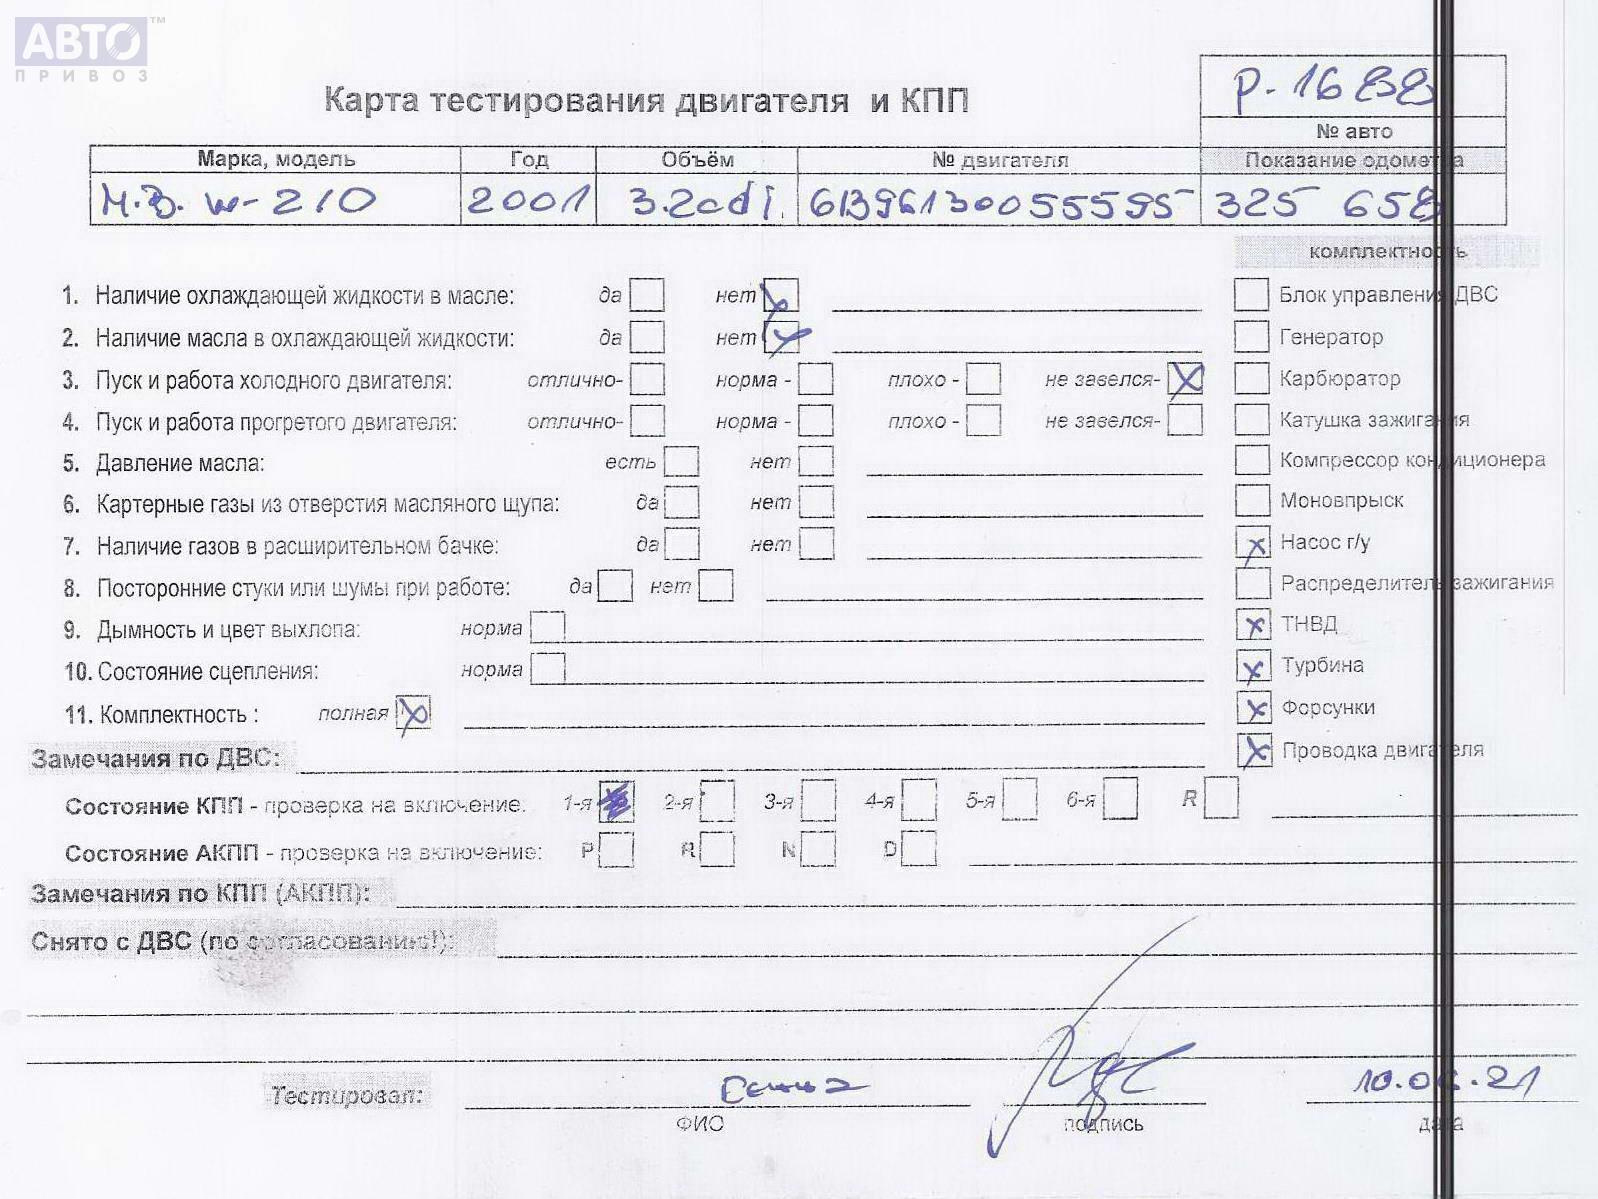 АВТО™
ПРИВОЗ
Карта тестирования двигателя и КПП
р. 1688
№ авто
Марка, модель Год Объём № двигателя Показание одометра
М.В. w-210 2001 3.2cdi. 61396130055595 325 658
комплектность
1. Наличие охлаждающей жидкости в масле: да нет Блок управления ДВС
2. Наличие масла в охлаждающей жидкости: да нет Генератор
3. Пуск и работа холодного двигателя: отлично- норма - плохо - не завелся- Карбюратор
4. Пуск и работа прогретого двигателя: отлично- норма - плохо - не завелся- Катушка зажигания
5. Давление масла: есть нет Компрессор кондиционера
6. Картерные газы из отверстия масляного щупа: да нет Моновпрыск
7. Наличие газов в расширительном бачке: да нет Насос г/у
8. Посторонние стуки или шумы при работе: да нет Распределитель зажигания
9. Дымность и цвет выхлопа: норма ТНВД
10. Состояние сцепления: норма Турбина
11. Комплектность : полная Форсунки
Замечания по ДВС: Проводка двигателя
Состояние КПП - проверка на включение: 1-я 2-я 3-я 4-я 5-я 6-я R
Состояние АКПП - проверка на включение: P R N D
Замечания по КПП (АКПП):
Снято с ДВС (по согласованию!):
Тестировал: 10.06.21
ФИО подпись дата